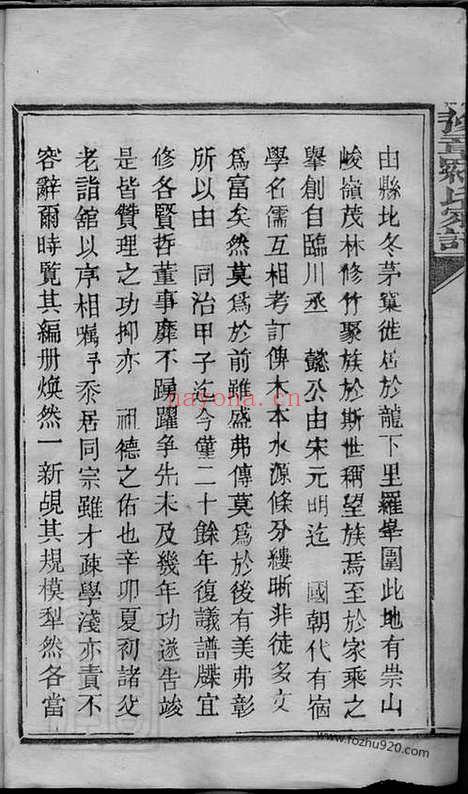 豫章羅氏家譜
由縣北冬茅窠徙居於龍下里羅畢圍此地有崇山
峻嶺茂林修竹聚族於斯世稱望族焉至於家乘之
舉創自臨川丞 懿公由宋元明迄 國朝代有宿
學名儒互相考訂俾木本水源條分縷晰非徒多文
為富矣然莫為於前雖盛弗傳莫為於後有美弗彰
所以由 同治甲子迄今僅二十餘年復議譜牒宜
修各賢哲董事靡不踴躍爭先未及幾年功遂告竣
是皆贊理之功抑亦 祖德之佑也辛卯夏初諸父
老詣舘以序相囑予忝居同宗雖才疎學淺亦責不
容辭爾時覽其編册煥然一新覘其規模犁然各當
nayona.cn
www.fozhu920.com